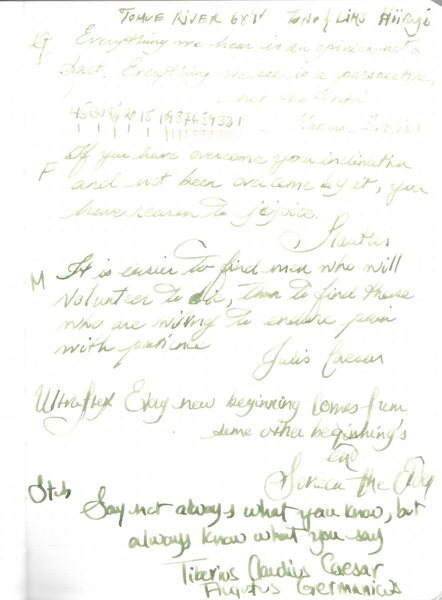 TOMOE RIVER TONO & LIMS Hiiragi
EF Everything we hear is an opinion, not a
fact. Everything we see is a perspective,
not the truth.
Marcus Aurelius
F If you have overcome your inclination
and not been overcome by it, you
have reason to rejoice.
Plautus
M It is easier to find men who will
volunteer to die, than to find those
who are willing to endure pain
with patience
Julis Caesar
Ultraflex Every new beginning comes from
some other beginning's
end
Seneca the
Stub
Say not always what you know, but
always know what you say
Tiberius Claudius Caesar
Augustus Germanicus